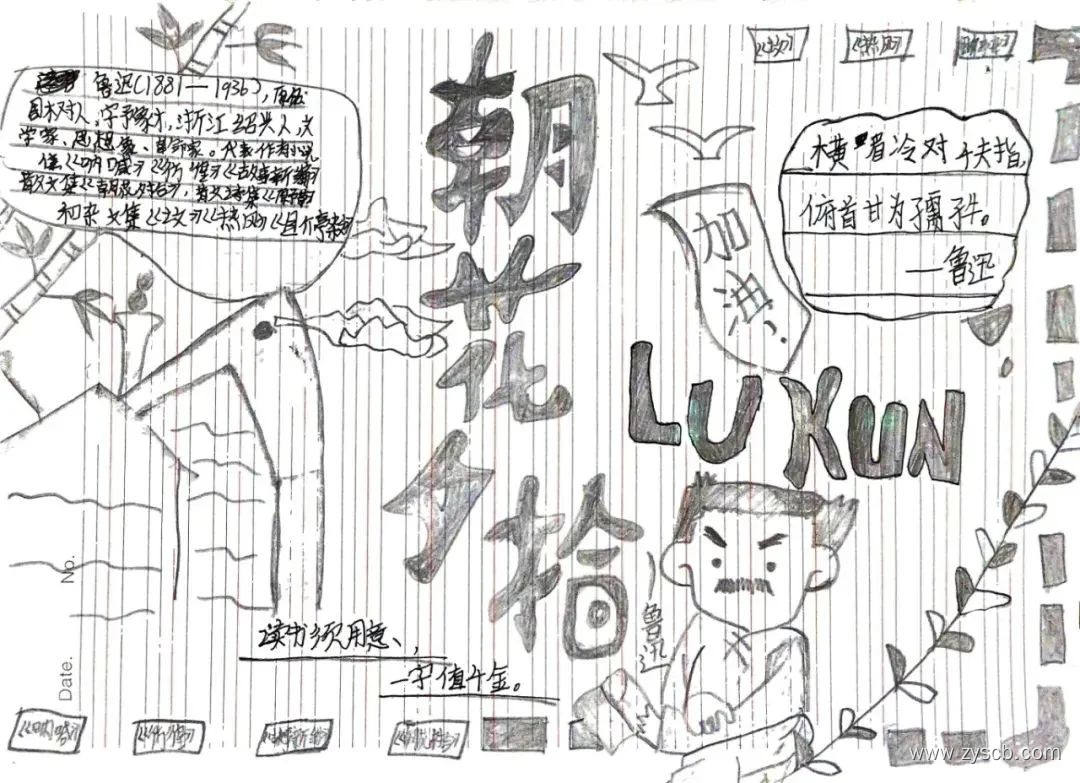 鲁迅(1881—1936),原名
周树人,字豫才,浙江绍兴人,文
学家、思想家、革命家。代表作有小说
集《呐喊》《彷徨》《故事新编》
散文集《朝花夕拾》,散文诗集《野草》
和杂文集《坟》《热风》《且介亭杂文》
朝花夕拾
加油.
《坟》
《热风》
横眉冷对千夫指,
俯首甘为孺子牛。
—鲁迅
LU XUN
鲁迅
读书须用意、,
一字值千金。
No.
Date.
《呐喊》
《彷徨》
《故事新编》
www.zyscb.com